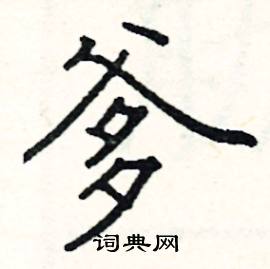 爹
词典网